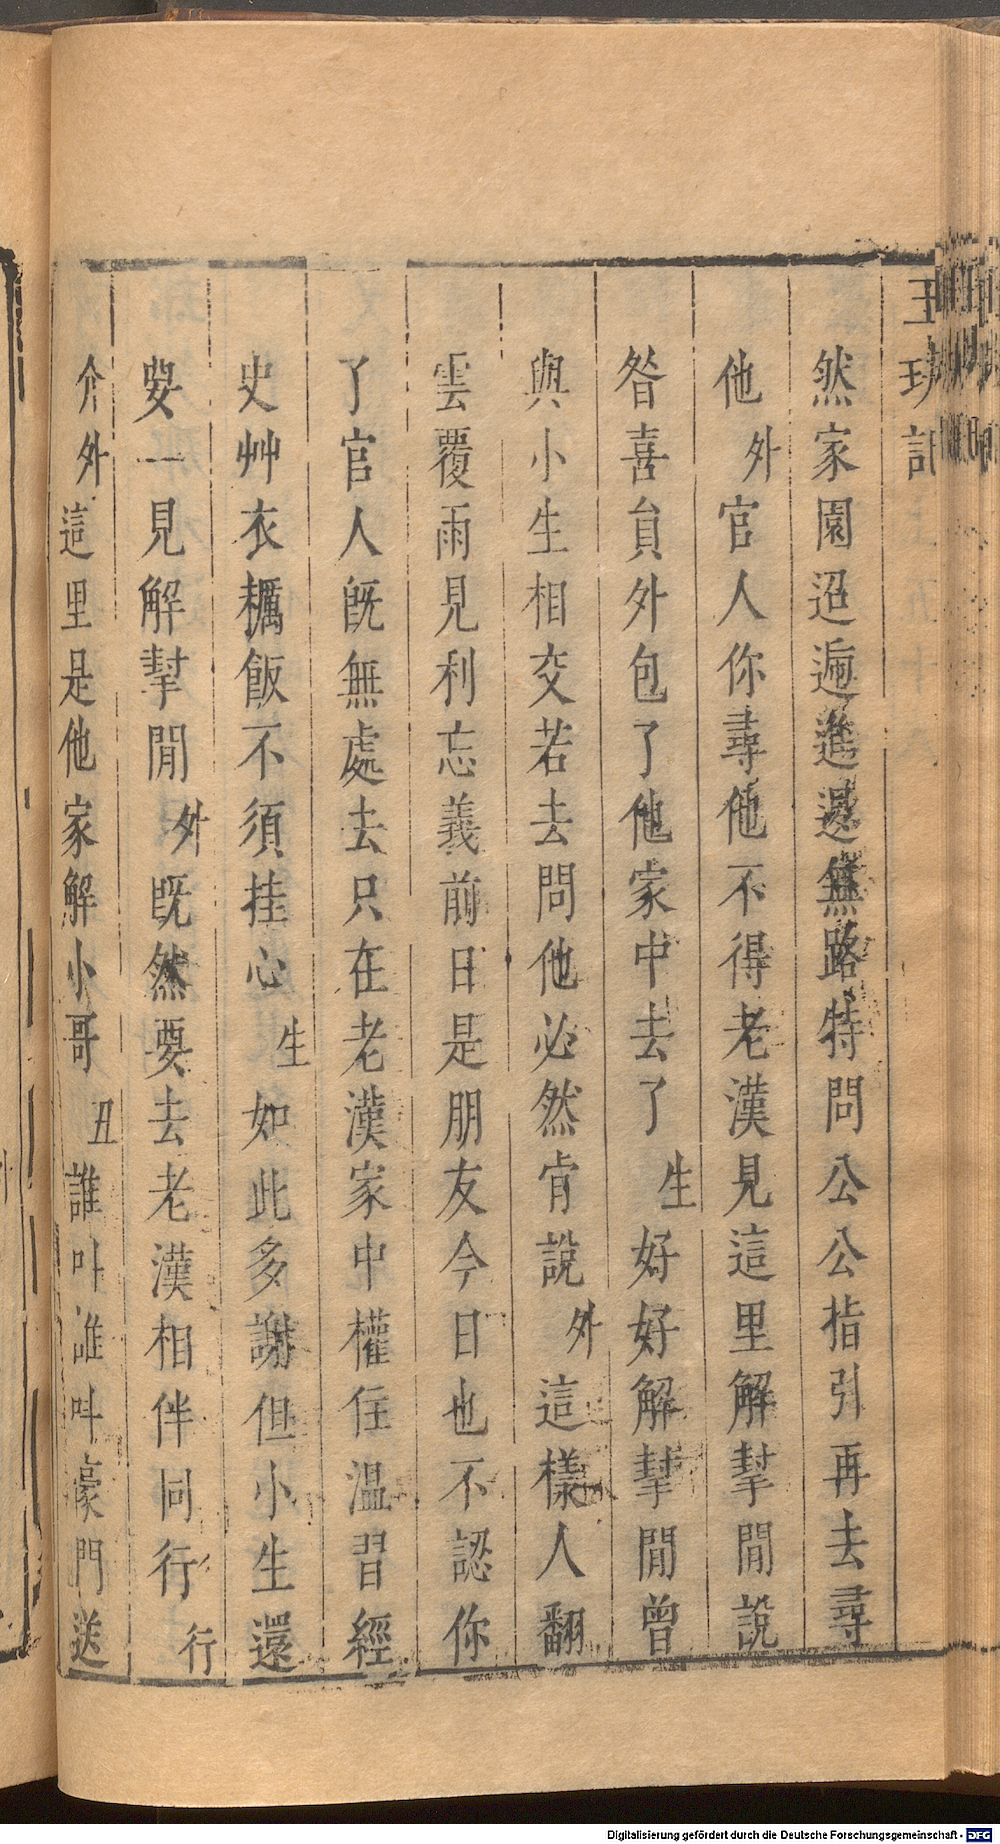 玉玦記
然家園迢遞進退無路特問公公指引再去尋
他外官人你尋他不得老漢見這里解挈閒說
昝喜員外包了他家中去了生好好解挈閒曾
與小生相交若去問他必然肯說外這樣人翻
雲覆雨見利忘義前日是朋友今日也不認你
了官人旣無處去只在老漢家中權住温習經
史艸衣糲飯不須挂心生如此多謝但小生還
要一見解挈閒外旣然要去老漢相伴同行行
介外這里是他家解小哥丑誰叫誰叫豪門送
Digitalisierung gefördert durch die Deutsche Forschungsgemeinschaft - DFG